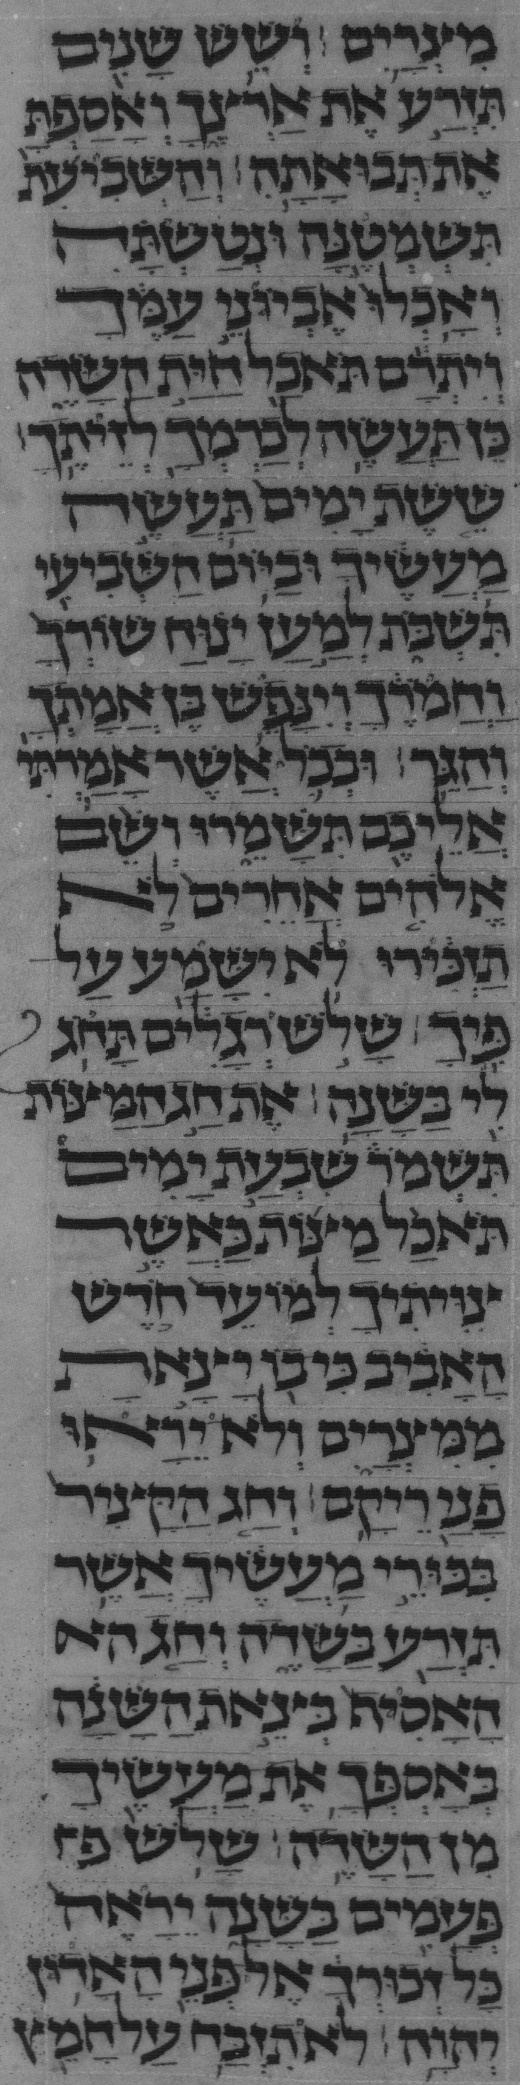 מִצְרָיִם ׃ וְשֵׁשׁ שָׁנִים
תִּזְרַע אֶת אַרְצֶךָ וְאָסַפְתָּ
אֶת תְּבוּאָתָהּ ׃ וְהַשְּׁבִיעִת
תִּשְׁמְטֶנָּה וּנְטַשְׁתָּהּ
וְאָכְלוּ אֶבְיוֹנֵי עַמֶּךָ
וְיִתְרָם תֹּאכַל חַיַּת הַשָּׂדֶה
כֵּן תַּעֲשֶׂה לְכַרְמְךָ לְזֵיתֶךָ ׃
שֵׁשֶׁת יָמִים תַּעֲשֶׂה
מַעֲשֶׂיךָ וּבַיּוֹם הַשְּׁבִיעִי
תִּשְׁבֹּת לְמַעַן יָנוּחַ שׁוֹרְךָ
וַחֲמֹרֶךָ וְיִנָּפֵשׁ בֶּן אֲמָתְךָ
וְהַגֵּר ׃ וּבְכֹל אֲשֶׁר אָמַרְתִּי
אֲלֵיכֶם תִּשָּׁמֵרוּ וְשֵׁם
אֱלֹהִים אֲחֵרִים לֹא
תַזְכִּירוּ לֹא יִשָּׁמַע עַל
פִּיךָ ׃ שָׁלֹשׁ רְגָלִים תָּחֹג
לִי בַּשָּׁנָה ׃ אֶת חַג הַמַּצּוֹת
תִּשְׁמֹר שִׁבְעַת יָמִים
תֹּאכַל מַצּוֹת כַּאֲשֶׁר
צִוִּיתִיךָ לְמוֹעֵד חֹדֶשׁ
הָאָבִיב כִּי בוֹ יָצָאתָ
מִמִּצְרָיִם וְלֹא יֵרָאוּ
פָנַי רֵיקָם ׃ וְחַג הַקָּצִיר
בִּכּוּרֵי מַעֲשֶׂיךָ אֲשֶׁר
תִּזְרַע בַּשָּׂדֶה וְחַג הא
הָאָסִיף בְּצֵאת הַשָּׁנָה
בְּאָסְפְּךָ אֶת מַעֲשֶׂיךָ
מִן הַשָּׂדֶה ׃ שָׁלֹשׁ פע
פְּעָמִים בַּשָּׁנָה יֵרָאֶה
כָּל זְכוּרְךָ אֶל פְּנֵי הָאָדֹן
יְהוָה ׃ לֹא תִזְבַּח עַל חָמֵץ